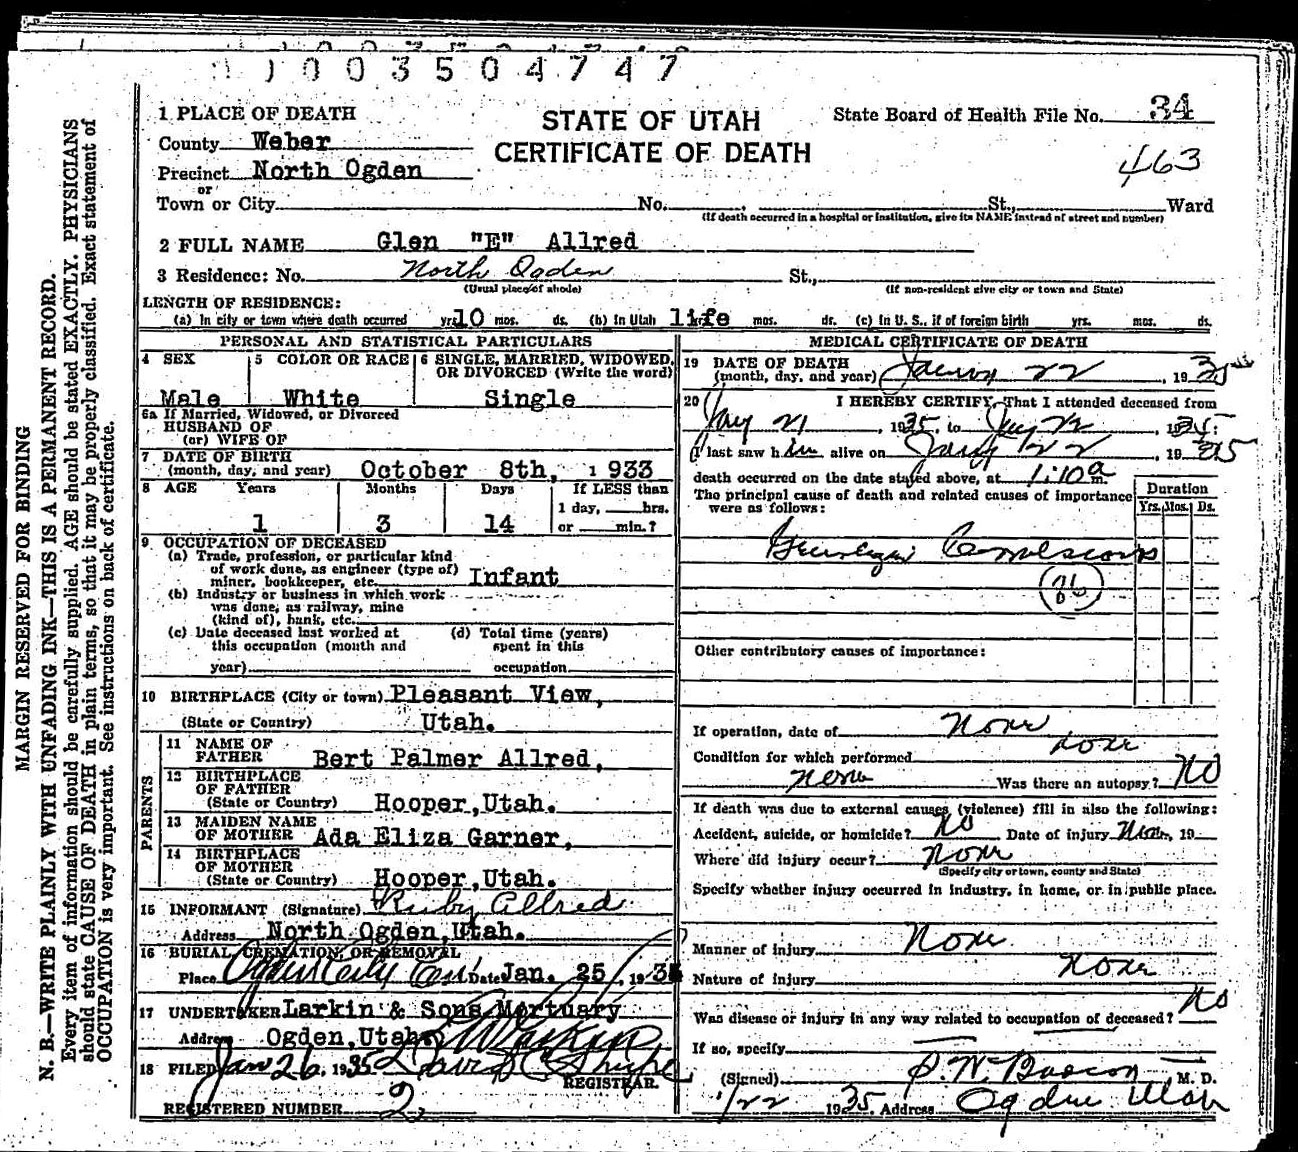 1003504747
1 PLACE OF DEATH
STATE OF UTAH
CERTIFICATE OF DEATH
State Board of Health File No. 34
463
County Weber
Precinct North Ogden
or
Town or City No. , St., Ward
(If death occurred in a hospital or institution, give its NAME instead of street and number)
2 FULL NAME Glen "E" Allred
3 Residence: No. North Ogden St.,
(Usual place of abode) (If non-resident give city or town and State)
LENGTH OF RESIDENCE:
(a) In city or town where death occurred yrs. 10 mos. ds. (b) In Utah life mos. ds. (c) In U. S., if of foreign birth yrs. mos. ds.
PERSONAL AND STATISTICAL PARTICULARS
4 SEX 5 COLOR OR RACE 6 SINGLE, MARRIED, WIDOWED, OR DIVORCED (Write the word)
Male White Single
6a If Married, Widowed, or Divorced
HUSBAND OF
(or) WIFE OF
7 DATE OF BIRTH
(month, day, and year) October 8th, 1933
8 AGE Years Months Days If LESS than
1 day, hrs.
1 3 14 or min.?
9 OCCUPATION OF DECEASED
(a) Trade, profession, or particular kind
of work done, as engineer (type of)
miner, bookkeeper, etc. Infant
(b) Industry or business in which work
was done, as railway, mine
(kind of), bank, etc.
(c) Date deceased last worked at (d) Total time (years)
this occupation (month and spent in this
year) occupation
10 BIRTHPLACE (City or town) Pleasant View,
(State or Country) Utah.
PARENTS
11 NAME OF
FATHER Bert Palmer Allred,
12 BIRTHPLACE
OF FATHER
(State or Country) Hooper, Utah.
13 MAIDEN NAME
OF MOTHER Ada Eliza Garner,
14 BIRTHPLACE
OF MOTHER
(State or Country) Hooper, Utah.
15 INFORMANT (Signature) Ruby Allred
Address North Ogden, Utah.
16 BURIAL, CREMATION, OR REMOVAL
Place Ogden City Cem. Date Jan. 25, 1935
17 UNDERTAKER Larkin & Sons Mortuary
Address Ogden, Utah.
18 FILED Jan 26, 1935
REGISTRAR.
REGISTERED NUMBER 2
MEDICAL CERTIFICATE OF DEATH
19 DATE OF DEATH
(month, day, and year) 22, 1935
20 I HEREBY CERTIFY, That I attended deceased from
21, 1935, to 22, 1935.
I last saw him alive on 22, 1935
death occurred on the date stated above, at 1:10 a m.
The principal cause of death and related causes of importance
were as follows:
Duration
Yrs. Mos. Ds.
86
Other contributory causes of importance:
If operation, date of None
Condition for which performed none
none Was there an autopsy? No
If death was due to external causes (violence) fill in also the following:
Accident, suicide, or homicide? No Date of injury None, 19
Where did injury occur? None
(Specify city or town, county and State)
Specify whether injury occurred in industry, in home, or in public place.
Manner of injury None
Nature of injury None
Was disease or injury in any way related to occupation of deceased? No
If so, specify
(Signed) M. D.
1/22 1935. Address Ogden Utah
MARGIN RESERVED FOR BINDING
N. B.—WRITE PLAINLY WITH UNFADING INK—THIS IS A PERMANENT RECORD.
Every item of information should be carefully supplied. AGE should be stated EXACTLY. PHYSICIANS
should state CAUSE OF DEATH in plain terms, so that it may be properly classified. Exact statement of
OCCUPATION is very important. See instructions on back of certificate.